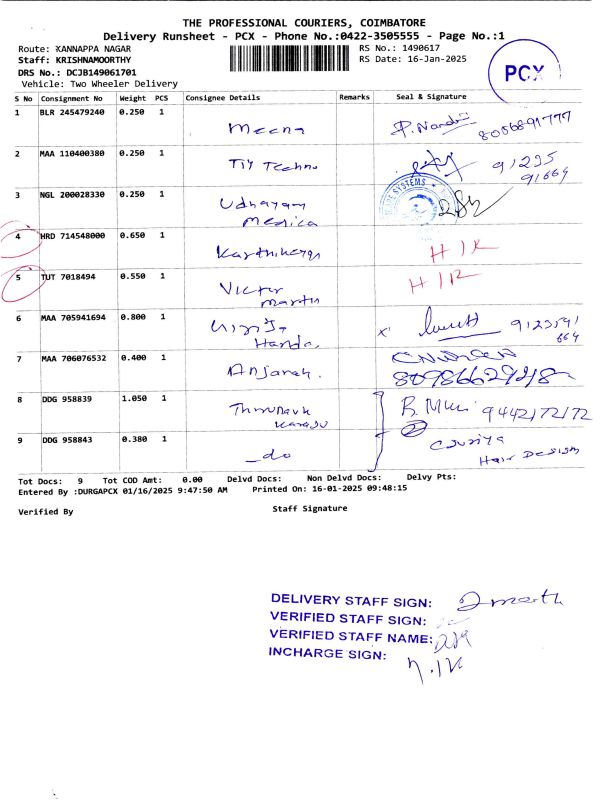 THE PROFESSIONAL COURIERS, COIMBATORE
Delivery Runsheet - PCX - Phone No.:0422-3505555 - Page No.:1
Route: KANNAPPA NAGAR
RS No.: 1490617
Staff: KRISHNAMOORTHY
RS Date: 16-Jan-2025
DRS No.: DCJB149061701
Vehicle: Two Wheeler Delivery
PCX
S No Consignment No Weight PCS Consignee Details Remarks Seal & Signature
1 BLR 245479240 0.250 1 Meena P. Nandi
2 MAA 110400380 0.250 1 91235
91664
3 NGL 200028330 0.250 1 Udhayam
Medica
4 HRD 714548000 0.650 1 Karthikeyan
5 TUT 7018494 0.550 1 Victor
Martin
6 MAA 705941694 0.800 1
7 MAA 706076532 0.400 1
8 DDG 958839 1.050 1 9442172172
9 DDG 958843 0.380 1 _do
Hair Design
Tot Docs: 9 Tot COD Amt: 0.00 Delvd Docs: Non Delvd Docs: Delvy Pts:
Entered By :DURGAPCX 01/16/2025 9:47:50 AM Printed On: 16-01-2025 09:48:15
Verified By Staff Signature
DELIVERY STAFF SIGN:
VERIFIED STAFF SIGN:
VERIFIED STAFF NAME:
INCHARGE SIGN: